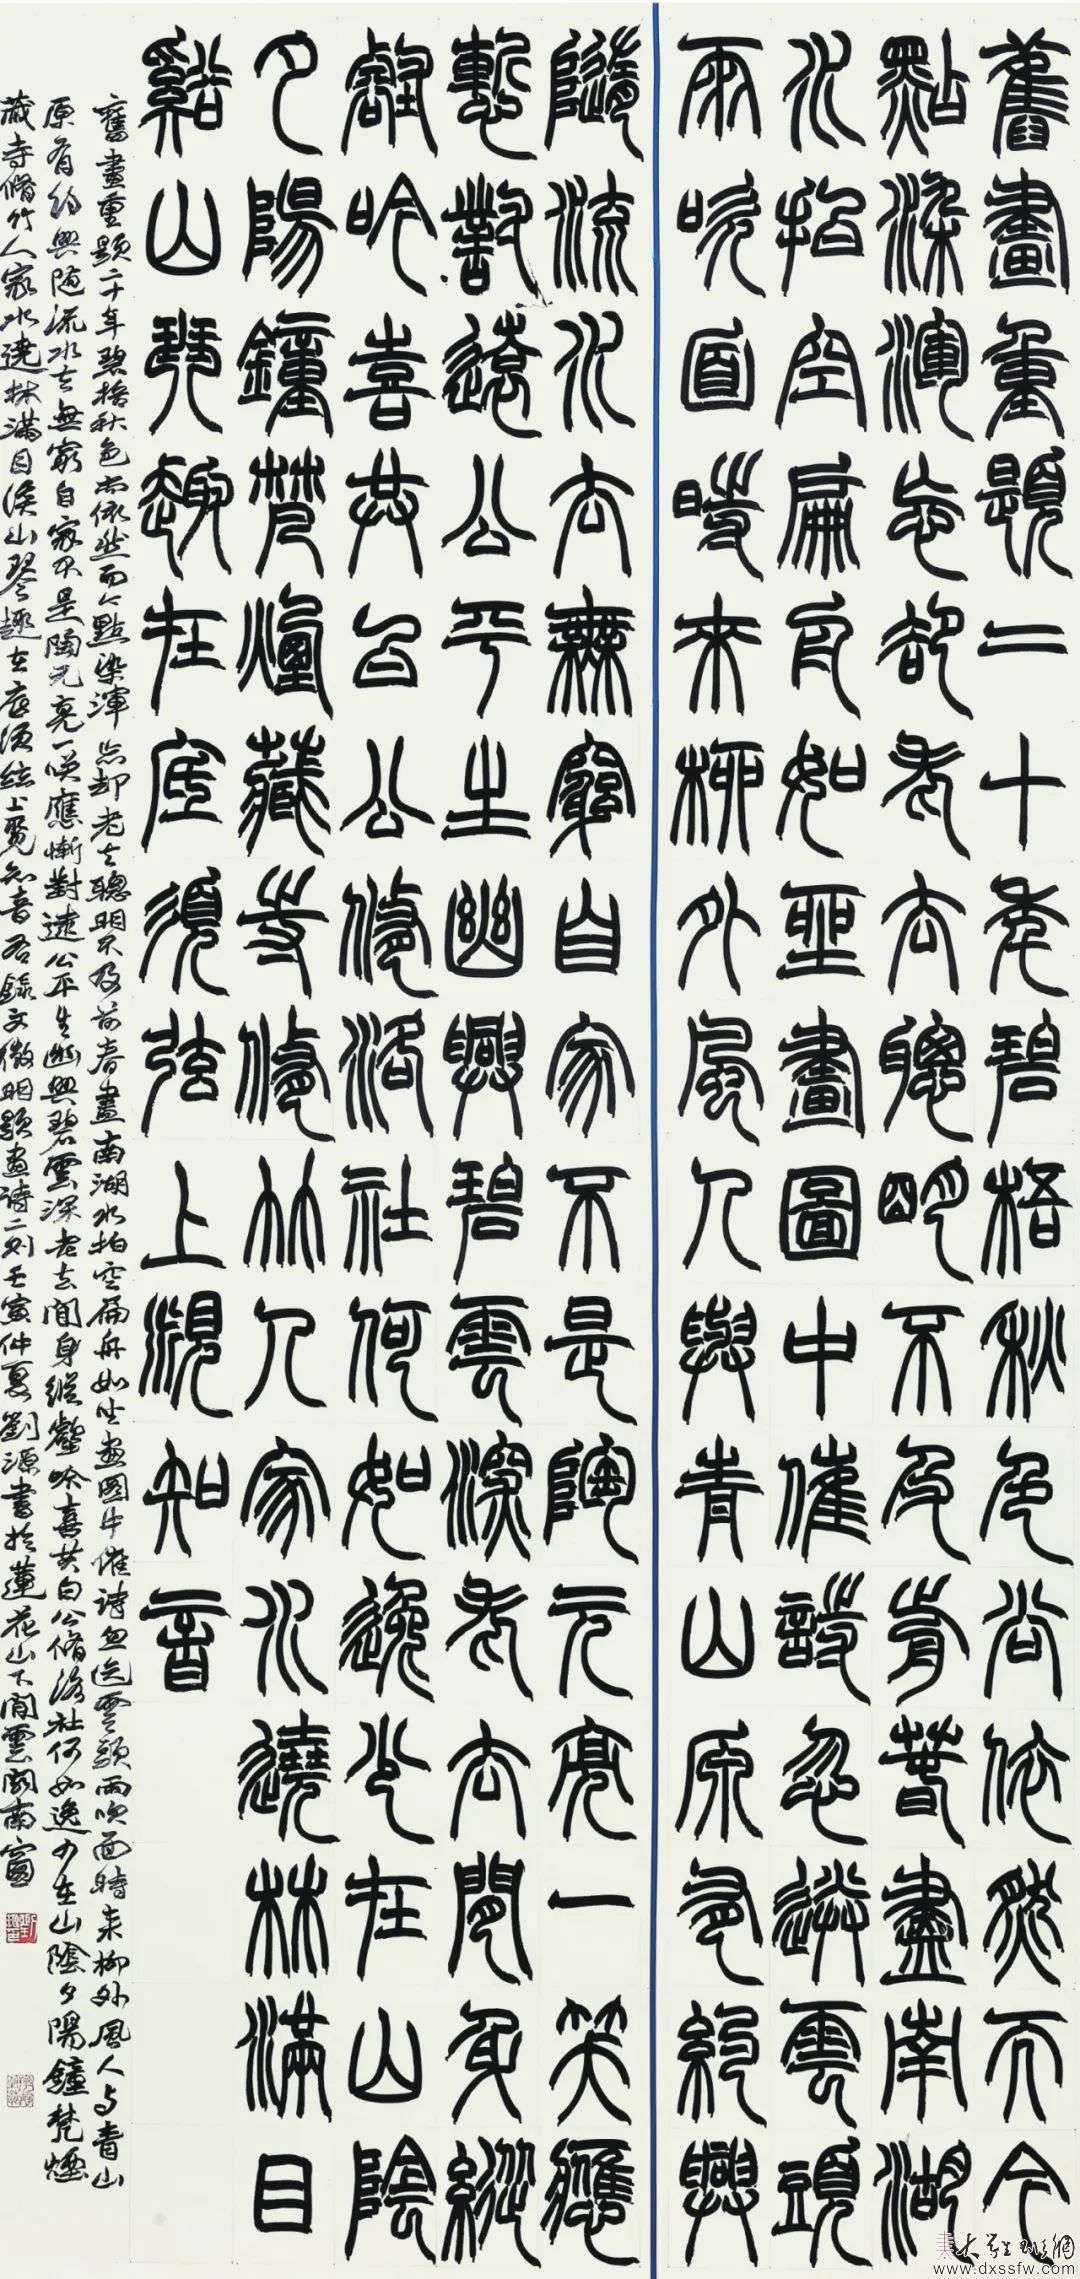 舊畫重題二十年碧梧秋色尚依然而今
點染渾忘卻老去聰明不及前春盡南湖
水拍空扁舟如坐畫圖中催詩忽送雲頭
雨吹面時來柳外風人與青山原有約興
隨流水去無窮自家不是陶元亮一笑應
慙對遠公平生幽興碧雲深老去閒身縱
壑吟喜共白公脩洛社何如逸少在山陰
夕陽鐘梵煙藏寺脩竹人家水繞林滿目
谿山琴趣在底須弦上覓知音
舊畫重題二十年碧梧秋色尚依然而今點染渾忘却老去聰明不及前春盡南湖水拍空扁舟如坐畫圖中催詩忽送雲頭雨吹面時來柳外風人与青山
原有約興隨流水去無窮自家不是陶元亮一笑應慚對遠公平生幽興碧雲深老去閒身縱壑吟喜共白公脩洛社何如逸少在山陰夕陽鐘梵煙
藏寺脩竹人家水遶林滿目溪山琴趣在底須絃上覓知音右錄文徵明題畫詩二則壬寅仲夏劉源書於蓮花山下閒雲閣南窗
www.dxssfw.com